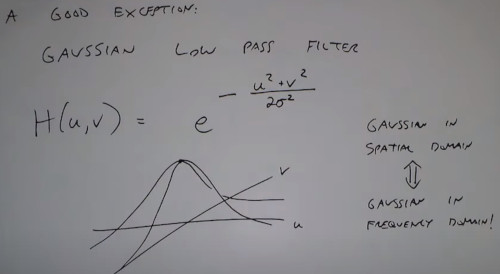 A GOOD EXCEPTION:
GAUSSIAN LOW PASS FILTER
H(u,v) = e^{-\frac{u^2+v^2}{2σ^2}}
GAUSSIAN IN
SPATIAL DOMAIN
⇕
GAUSSIAN IN
FREQUENCY DOMAIN!
v
u